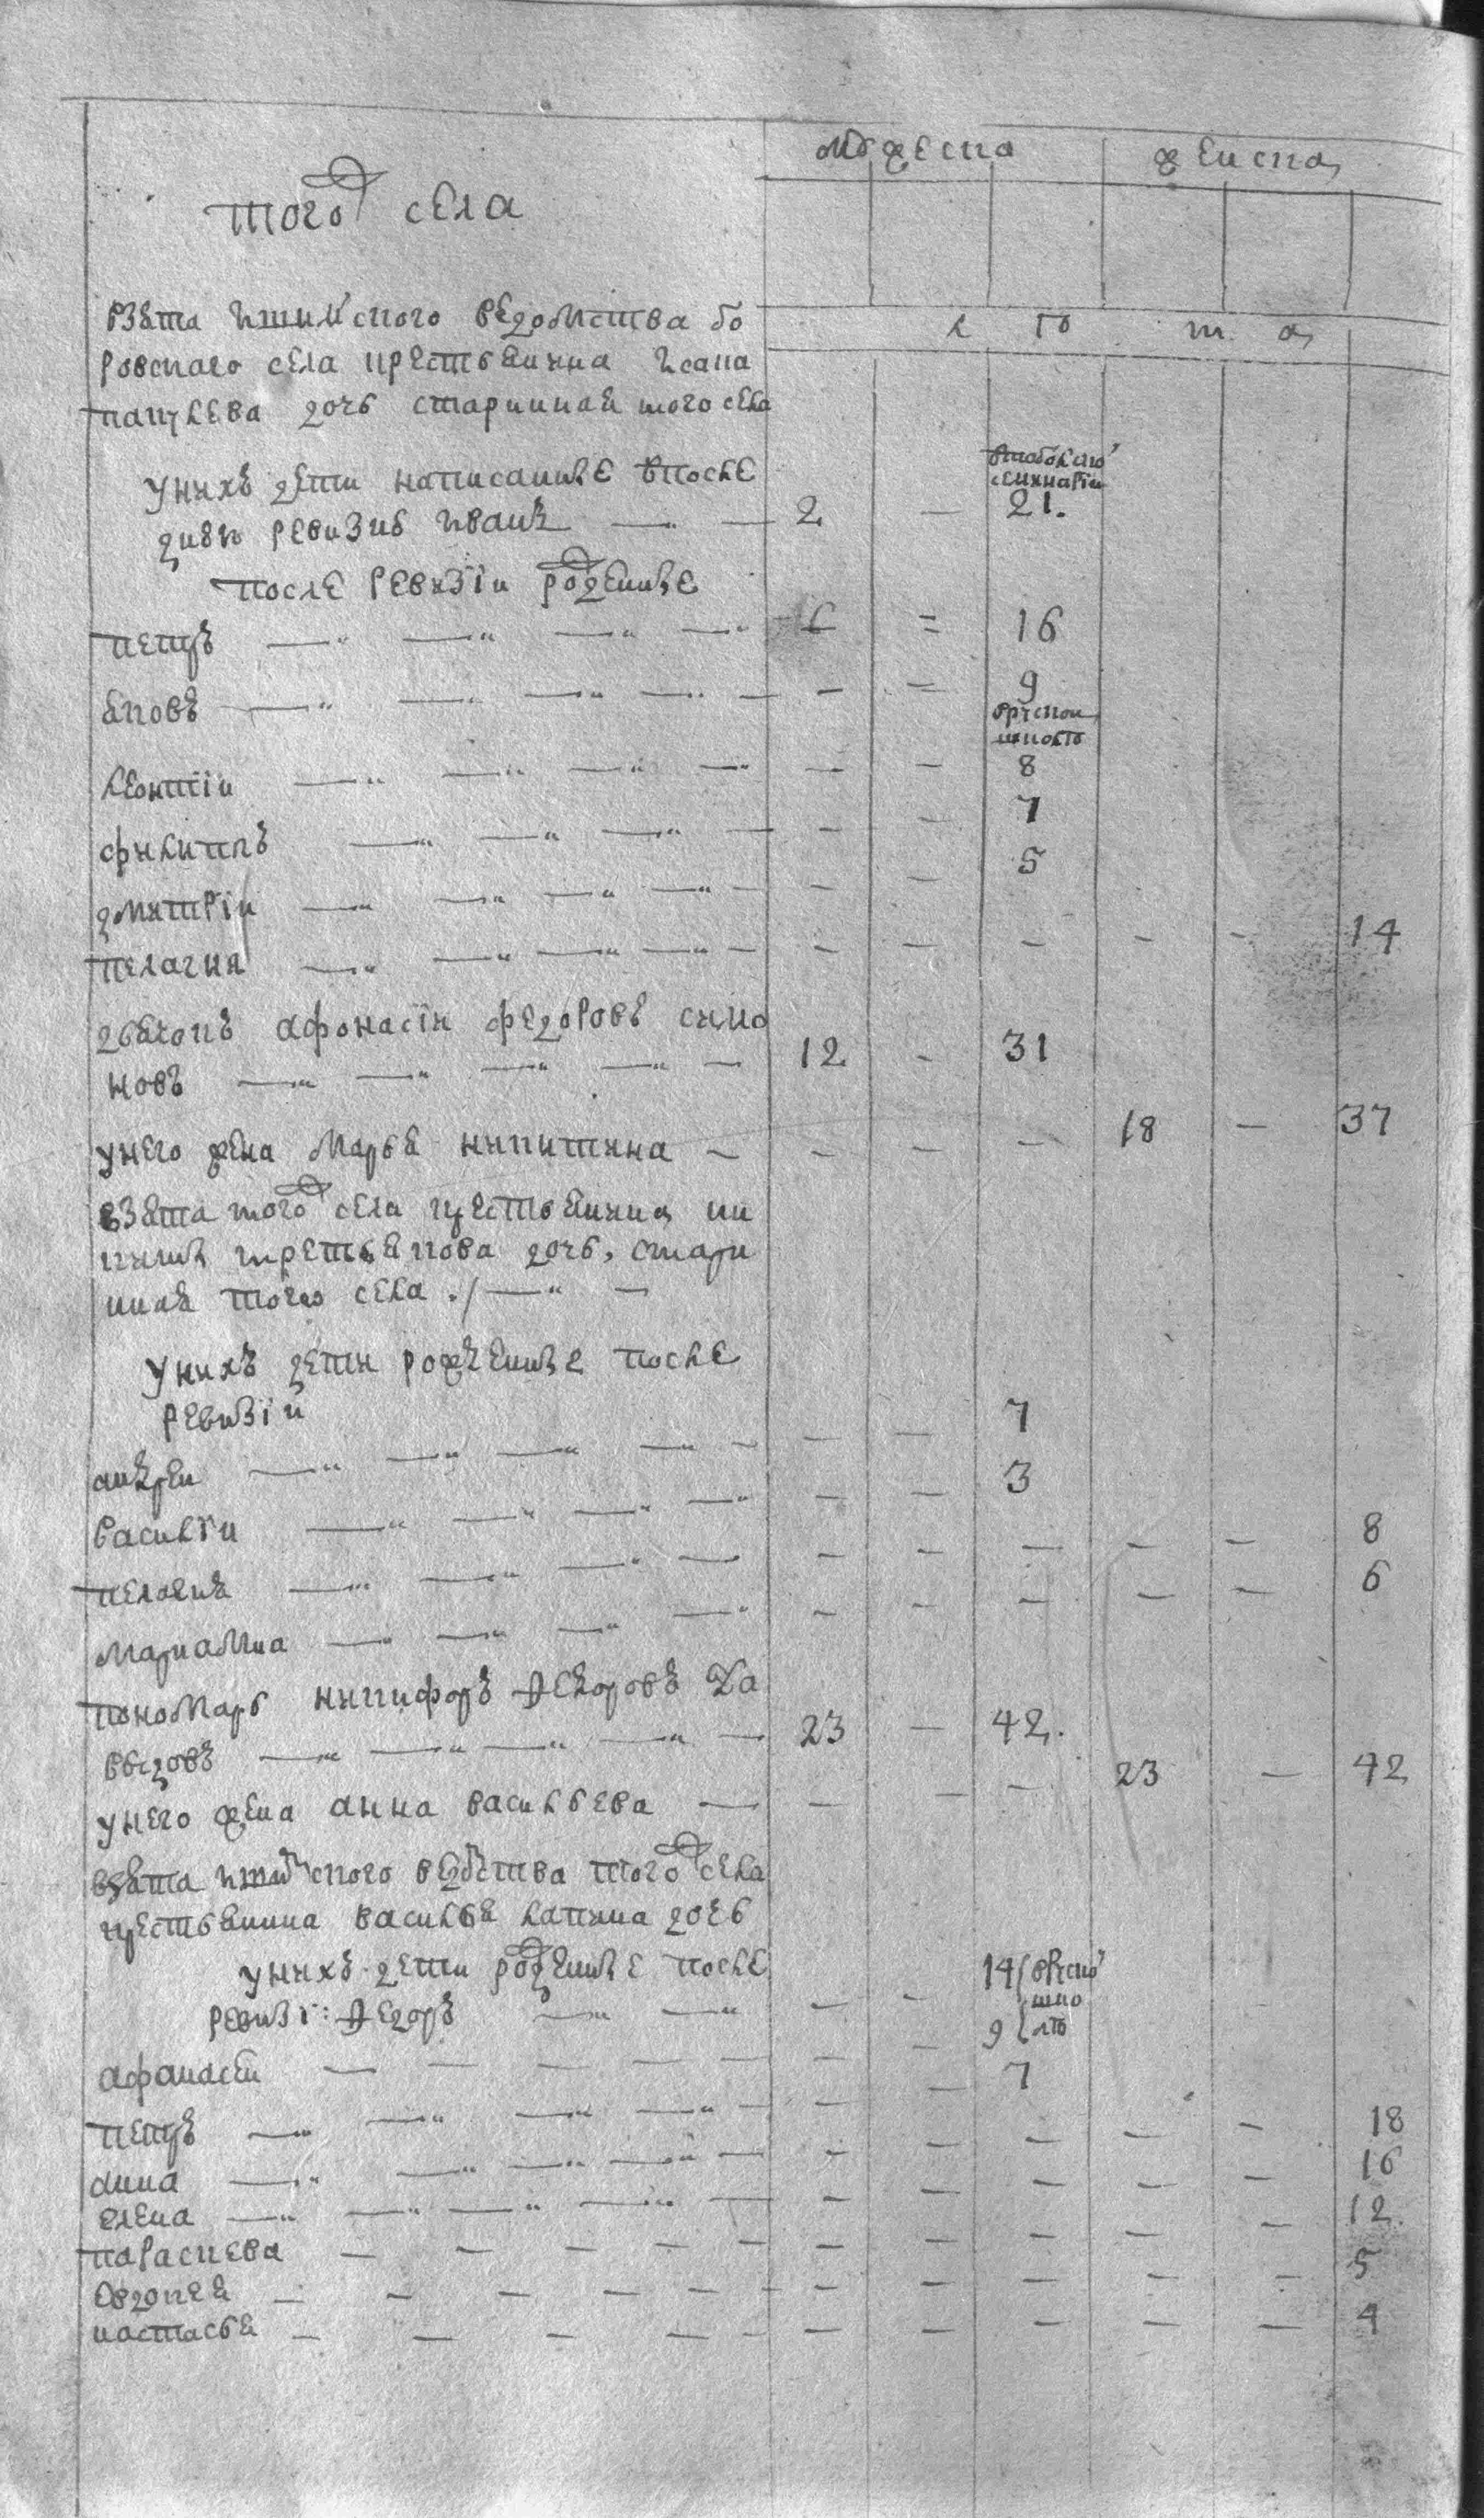 мужеска женска
того ж села
лѣ та
взята Ишимского ведомства бо
ровскаго села крестьянина Исака
дочь старинная того села
у них дети написанные в после
дней ревизии Иванъ — — 2 — 21.
в тобольской семинарии
после ревизии рожденные
Петръ — — — — 16
Яковъ — — — — — — 9
в русской школе
Леонтий — — — — — — 8
Филиппъ — — — — — — 7
Дмитрий — — — — — — 5
Пелагия — — — — — — — — — — 14
дьячокъ Афонасiй Федоровъ Симо
новъ — — — — — 12 — 31
у него жена Марья Никитина — — — — 18 — 37
взята того ж села крестьянина Ни
киты Третьякова дочь, стари
нная того села ./ — —
у нихъ дети рожденные после
ревизiи
Андрей — — — — — — — 7
Василей — — — — — — 3
— — — — — — — — — 8
Мариамна — — — — — — — — — 6
пономарь Никифоръ Федоровъ Да
выдовъ — — — — — 23 — 42.
у него жена Анна Васильева — — — — 23 — 42
взята Ишимского ведомства того ж села
крестьянина Василья Лапина дочь
у нихъ дети рожденные после
ревизi: Федоръ — — — — 14 в русской
Афанасей — — — — — — — 9 школе
Петръ — — — — — — — 7
Анна — — — — — — — — — — 18
Елена — — — — — — — — — — 16
Параскева — — — — — — — — — — 12.
Евдокея — — — — — — — — — — 5
Настасья — — — — — — — — — — 4